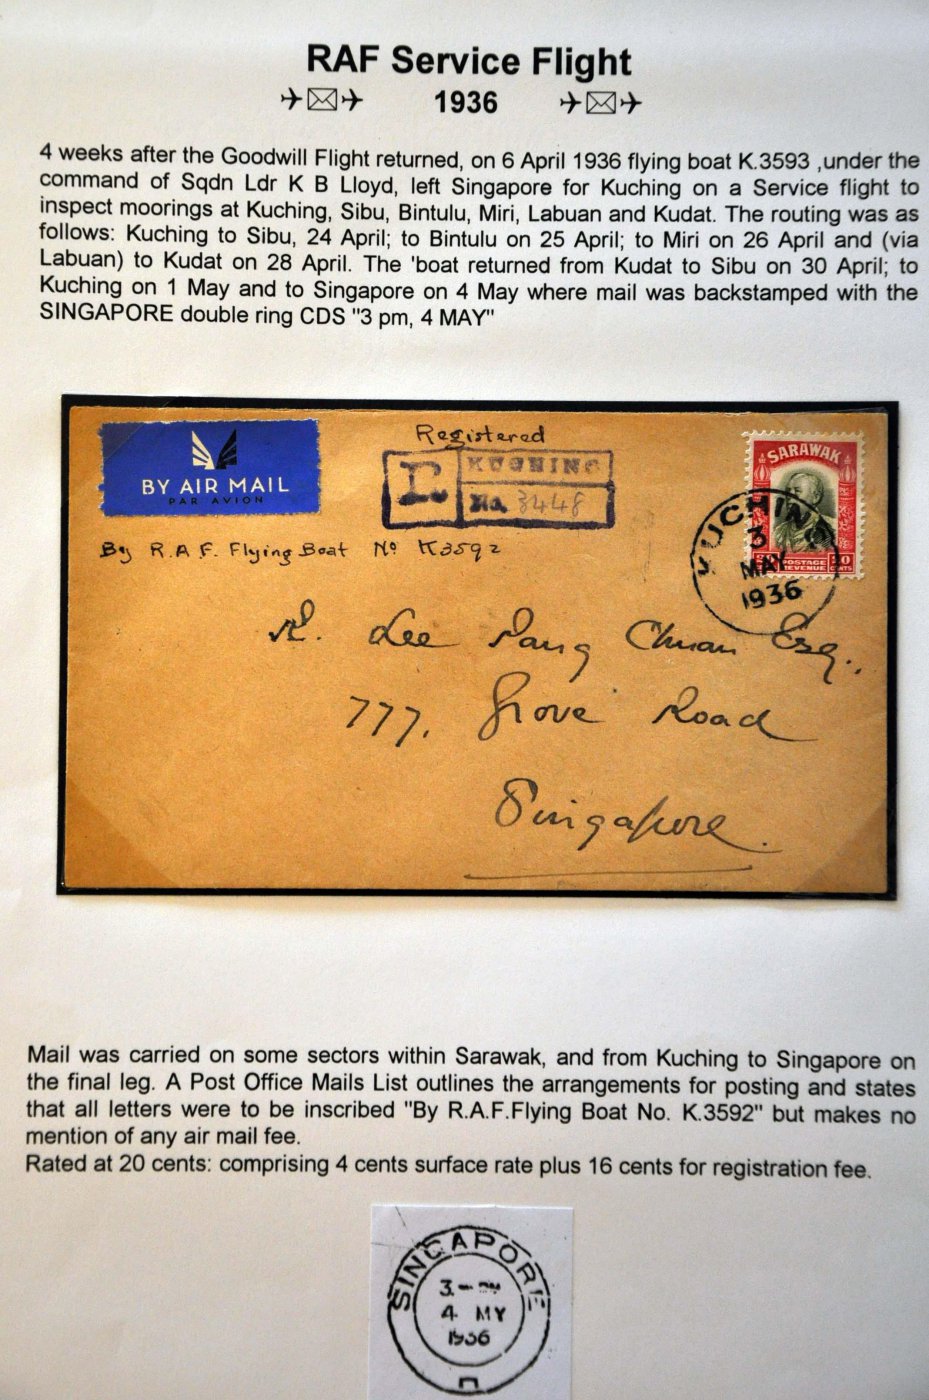 RAF Service Flight
1936
4 weeks after the Goodwill Flight returned, on 6 April 1936 flying boat K.3593 ,under the
command of Sqdn Ldr K B Lloyd, left Singapore for Kuching on a Service flight to
inspect moorings at Kuching, Sibu, Bintulu, Miri, Labuan and Kudat. The routing was as
follows: Kuching to Sibu, 24 April; to Bintulu on 25 April; to Miri on 26 April and (via
Labuan) to Kudat on 28 April. The 'boat returned from Kudat to Sibu on 30 April; to
Kuching on 1 May and to Singapore on 4 May where mail was backstamped with the
SINGAPORE double ring CDS "3 pm, 4 MAY"
BY AIR MAIL
PAR AVION
Registered
R. KUCHING
No. 3448
SARAWAK
POSTAGE
REVENUE
CENTS
KUCHING
3
MAY
1936
By R.A.F. Flying Boat No K3592
Lee Pang Chuan Esq.,
777, Grove Road
Singapore.
Mail was carried on some sectors within Sarawak, and from Kuching to Singapore on
the final leg. A Post Office Mails List outlines the arrangements for posting and states
that all letters were to be inscribed "By R.A.F.Flying Boat No. K.3592" but makes no
mention of any air mail fee.
Rated at 20 cents: comprising 4 cents surface rate plus 16 cents for registration fee.
SINGAPORE
4 MY
1936